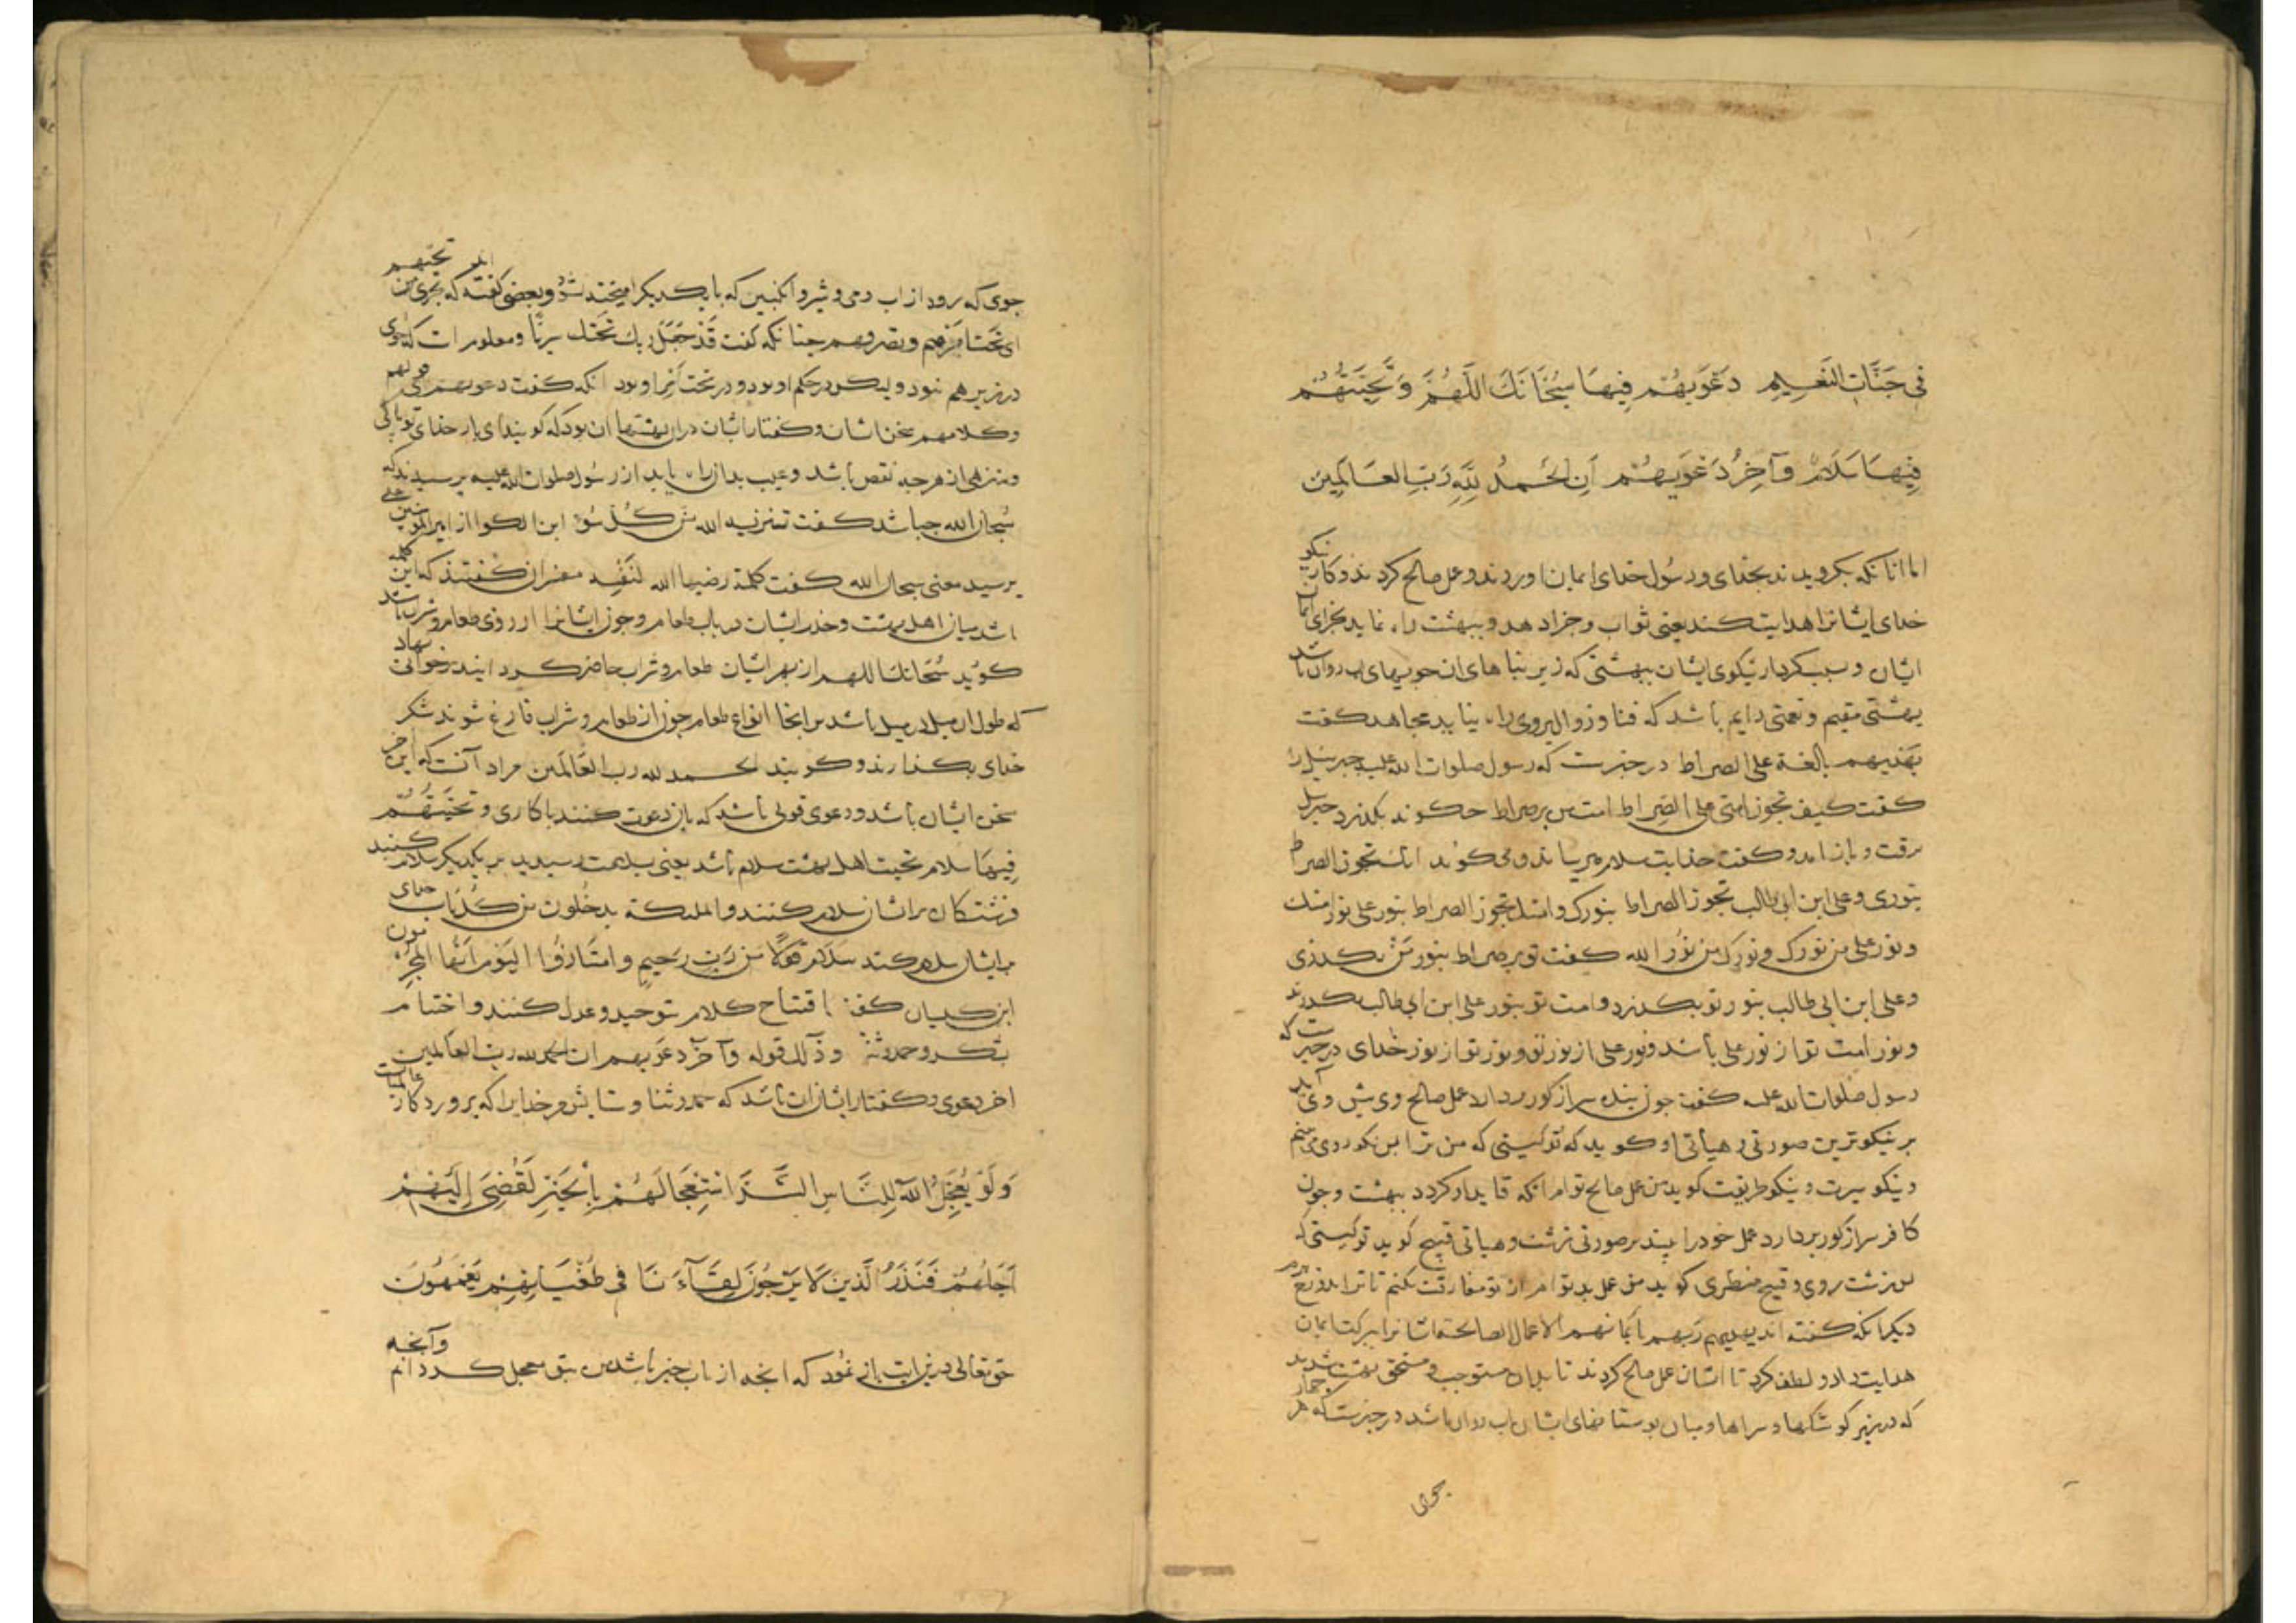 فی جَنَّاتِ النَّعِیمِ دَعْوَیهُمْ فِیهَا سُبْحَانَكَ اللَّهُمَّ وَ تَحِیَّتُهُمْ
فِیهَا سَلَامٌ وَآخِرُ دَعْوَیهُمْ اَنِ الْحَمْدُ لِلّٰهِ رَبِّ العَالَمِینَ
اما انانکه بکرویدند بخدای و رسول خدای ایمان اوردند و عمل صالح کردند و کار نیکو
خدای ایشانرا هدایت کند یعنی ثواب و جزا دهد و ببهشت راه نماید بجزای ایمان
ایشان و سبب کردار نیکوی ایشان ببهشتی که زیر بناهای ان جویهای اب روان باشد
بهشتی مقیم و نعمتی دایم باشد که فنا و زوال بروی راه نیابد مجاهد کفت
یهدیهم بالغة علی الصراط در خبرست که رسول صلوات الله علیه جبرئیل را
کفت کیف تجوز امتی علی الصراط امت من بر صراط چکونه بکذرد جبریل
برفت و باز امد و کفت خدایت سلام میرساند و می کوید انك تجوز الصراط
بنوری و علی ابن ابی طالب تجوز الصراط بنورك و امتك تجوز الصراط بنور علی نور امتك
و نور علی من نورك و نورك من نور الله کفت تو بر صراط بنور من بکذری
و علی ابن ابی طالب بنور تو بکذرد و امت تو بنور علی ابن ابی طالب بکذرند
و نور امت تو از نور علی باشد و نور علی از نور تو و نور تو از نور خدای در خبرست که
رسول صلوات الله علیه کفت چون بنده سر از کور بردارد عمل صالح وی پیش وی آید
بر نیکوترین صورتی و هیاتی او کوید که تو کیستی که من ترا بس نکو روی می بینم
و نیکو سیرت و نیکو طریقت کوید من عمل صالح توام انکه قاید او کردد ببهشت و چون
کافر سر از کور بردارد عمل خود را بیند بر صورتی زشت و هیاتی قبیح کوید تو کیستی که
بس زشت روی و قبیح منظری کوید من عمل بد توام از تو مفارقت نکنم تا ترا بدوزخ برم
دیکر انکه کفته اند یهدیهم ربهم بایمانهم الاعمال الصالحة ایشانرا ببرکت ایمان
هدایت داد و لطف کرد تا ایشان عمل صالح کردند تا بدان مستوجب و مستحق بهشت شدند
که در زیر کوشکها و سراها و میان بوستانهای ایشان اب روان باشد در خبرست که هر چهار
جوی
جوی که رود از اب و می و شیر و انکبین که با یکدیکر امیخته شود و بعضی کفته اند که تجری من تحتهم
ای تحت امرهم و تصرفهم چنانکه کفت قَدْ جَعَلَ رَبُّكِ تَحْتَكِ سَرِیًّا و معلوم است که جوی
در زیر هم نبود ولیکن در حکم او بود و در تحت امر او بود انکه کفت دعویهم قولهم
و کلامهم سخن ایشان و کفتار ایشان دران بهشتها ان بود که کویند ای بار خدای تو پاکی
و منزهی از هر چه نقص باشد و عیب بدان راه یابد از رسول صلوات الله علیه پرسیدند که
سُبحان الله چباشد کفت تنزیه الله من کل سوء ابن الکوا از امیرالمؤمنین علی
پرسید معنی سبحان الله کفت کلمة رضیها الله لنفسه مفسران کفتند که این کلمه
باشد میان اهل بهشت و خدم ایشان در باب طعام و چون ایشانرا ارزوی طعام و شراب باشد
کویند سُبْحَانَكَ اللهم از بهر ایشان طعام و شراب حاضر کرد ایند بر خوانی نهاد
که طول ان میل در میل باشد بر انجا انواع طعام چون از طعام و شراب فارغ شوند شکر
خدای بکذارند و کویند الحمد لله رب العالمین مراد آنست که این آخر
سخن ایشان باشد و دعوی قولی باشد که بان دعوت کنند با کاری و تَحِیَّتُهُمْ
فِیهَا سلام تحیت اهل بهشت سلام باشد یعنی بسلامت رسیدید بر یکدیکر سلام کنند
و فرشتکان بر ایشان سلام کنند والملئکة یدخلون من کُلِّ باب خدای
بر ایشان سلام کند سَلَامٌ قَوْلًا مِن رَبٍّ رَحِیمٍ وامتازُوا الیَوْمَ اَیُّهَا المُجْرِمُون
ابن کیسان کفت افتتاح کلام بتوحید و عدل کنند و اختتام
بشکر و حمد و ثنا و ذلك قوله وآخر دعویهم ان الحمد لله رب العالمین
اخر دعوی و کفتار ایشان ان باشد که حمد و ثنا و ستایش مر خدایرا که پروردکار عالمیان است
وَلَوْ یُعَجِّلُ اللّٰهُ لِلنَّاسِ الشَّرَّ اسْتِعْجَالَهُمْ بِالْخَیْرِ لَقُضِیَ اِلَیْهِمْ
اَجَلُهُمْ فَنَذَرُ الَّذینَ لَا یَرْجُونَ لِقَآءَنَا فی طُغْیَانِهِمْ یَعْمَهُونَ
حق تعالی درین ایت باز نمود که انچه از باب خیر باشد من بتو معجل کردانم وآنچه